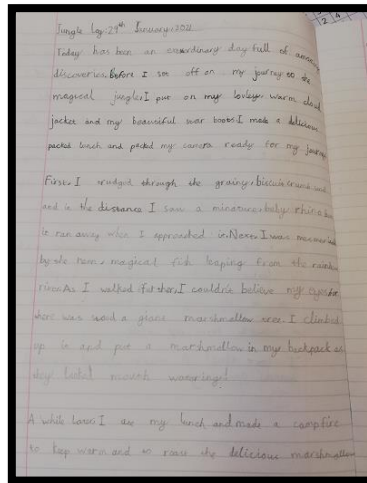 Jungle Log 29th January 2021
Today has been an extraordinary day full of
discoveries. Before I set off on my journey to the
magical jungle, I put on my lovley, warm cloud
jacket and my beautiful star boots. I made a delicious
packed lunch and packed my camera ready for my journey
First, I trudged through the grainy, biscuit crumb sand
and in the distance I saw a minature, baby rhino but
it ran away when I approached it. Next, I was mesmerised
by the tiny, magical fish leaping from the rainbow
river. As I walked further, I couldn't believe my eyes for
there was stood a giant marshmallow tree. I climbed
up it and put a marshmallow in my backpack as
they looked mouth watering!
A while later I ate my lunch and made a campfire
to keep warm and to roast the delicious marshmallow